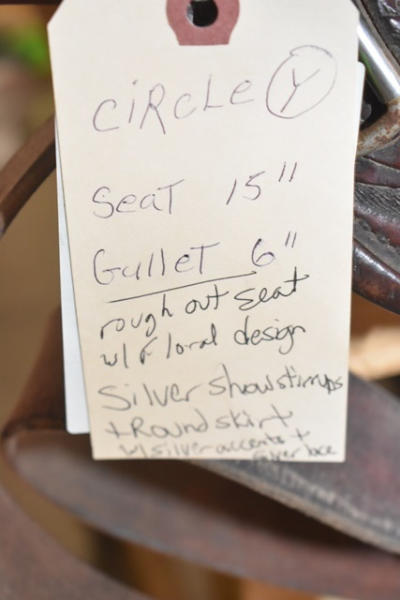 CiRCLE Y
Seat 15"
Gullet 6"
rough out seat
w/ floral design
Silver show stirrups
+ Round skirt
w/ silver accents +
silver lace